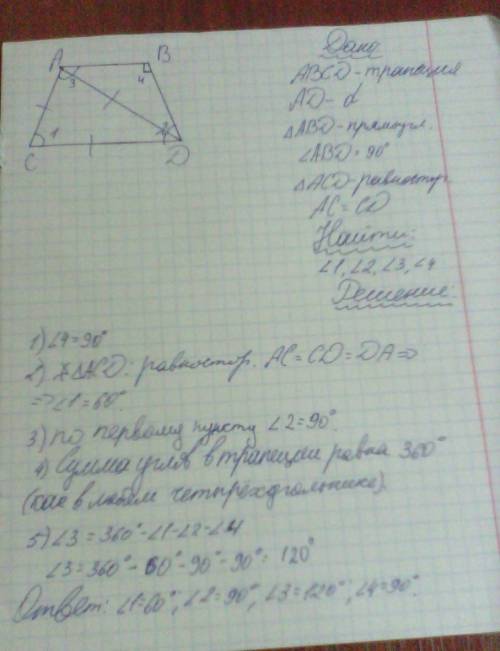 A B
3 4
1
C D
Дано
ABCD-трапеция
AD- d
△ABD-прямоуг.
∠ABD=90°
△ACD-равностор.
AC=CD
Найти:
∠1, ∠2, ∠3, ∠4
Решение:
1) ∠4=90°
2) △ACD: равностор. AC=CD=DA⇒
⇒∠1=60°.
3) по первому пункту ∠2=90°.
4) Сумма углов в трапеции равна 360°
(как в любом четырёхугольнике).
5) ∠3=360°-∠1-∠2-∠4
∠3=360°-60°-90°-90°=120°
Ответ: ∠1=60°; ∠2=90°; ∠3=120°; ∠4=90°.